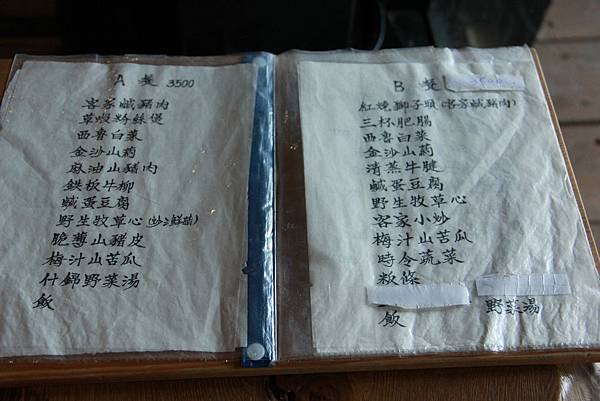 A 餐 3500
客家鹹豬肉
草蝦粉絲煲
西魯白菜
金沙山葯
麻油山豬肉
鉄板牛柳
鹹蛋豆腐
野生牧草心(炒鮮菇)
脆薄山豬皮
梅汁山苦瓜
什錦野菜湯
飯
B 餐
紅燒獅子頭(客家鹹豬肉)
三杯肥腸
西魯白菜
金沙山葯
清蒸牛腱
鹹蛋豆腐
野生牧草心
客家小炒
梅汁山苦瓜
時令蔬菜
野菜湯
飯